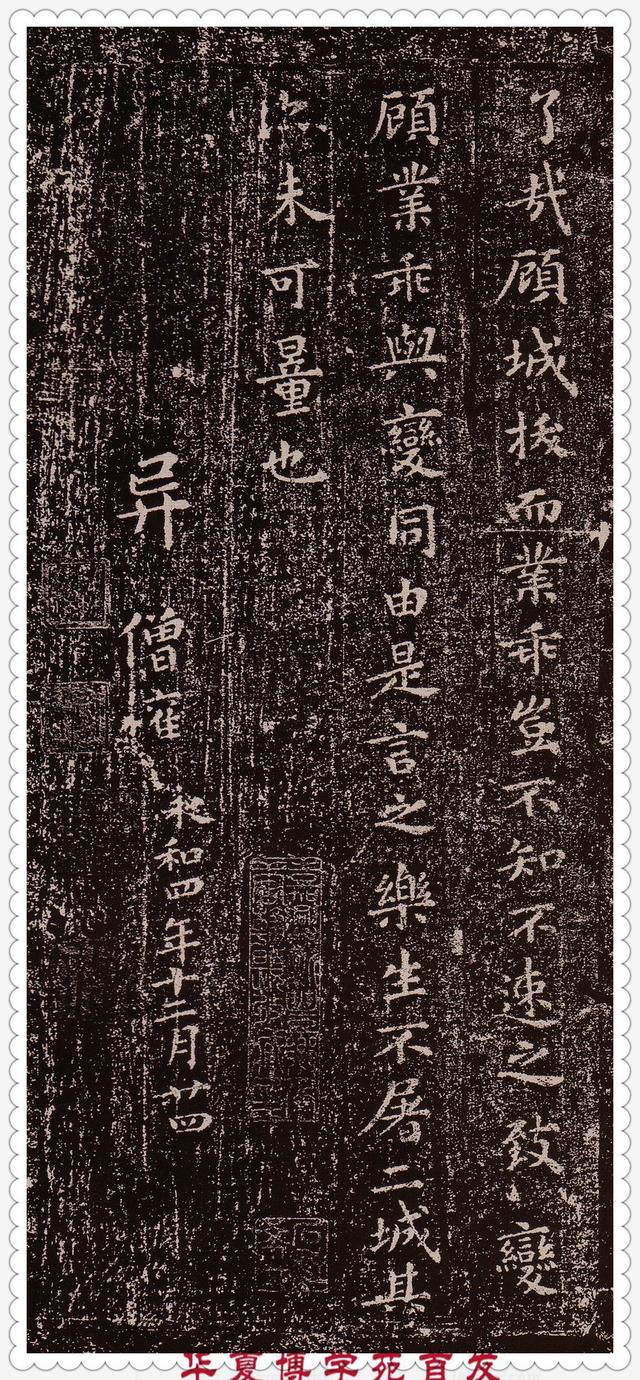 了哉顧城拔而業乖豈不知不速之致變
顧業乖與變同由是言之樂生不屠二城其
亦未可量也
异
僧權
永和四年十二月廿四
华夏博学苑首发